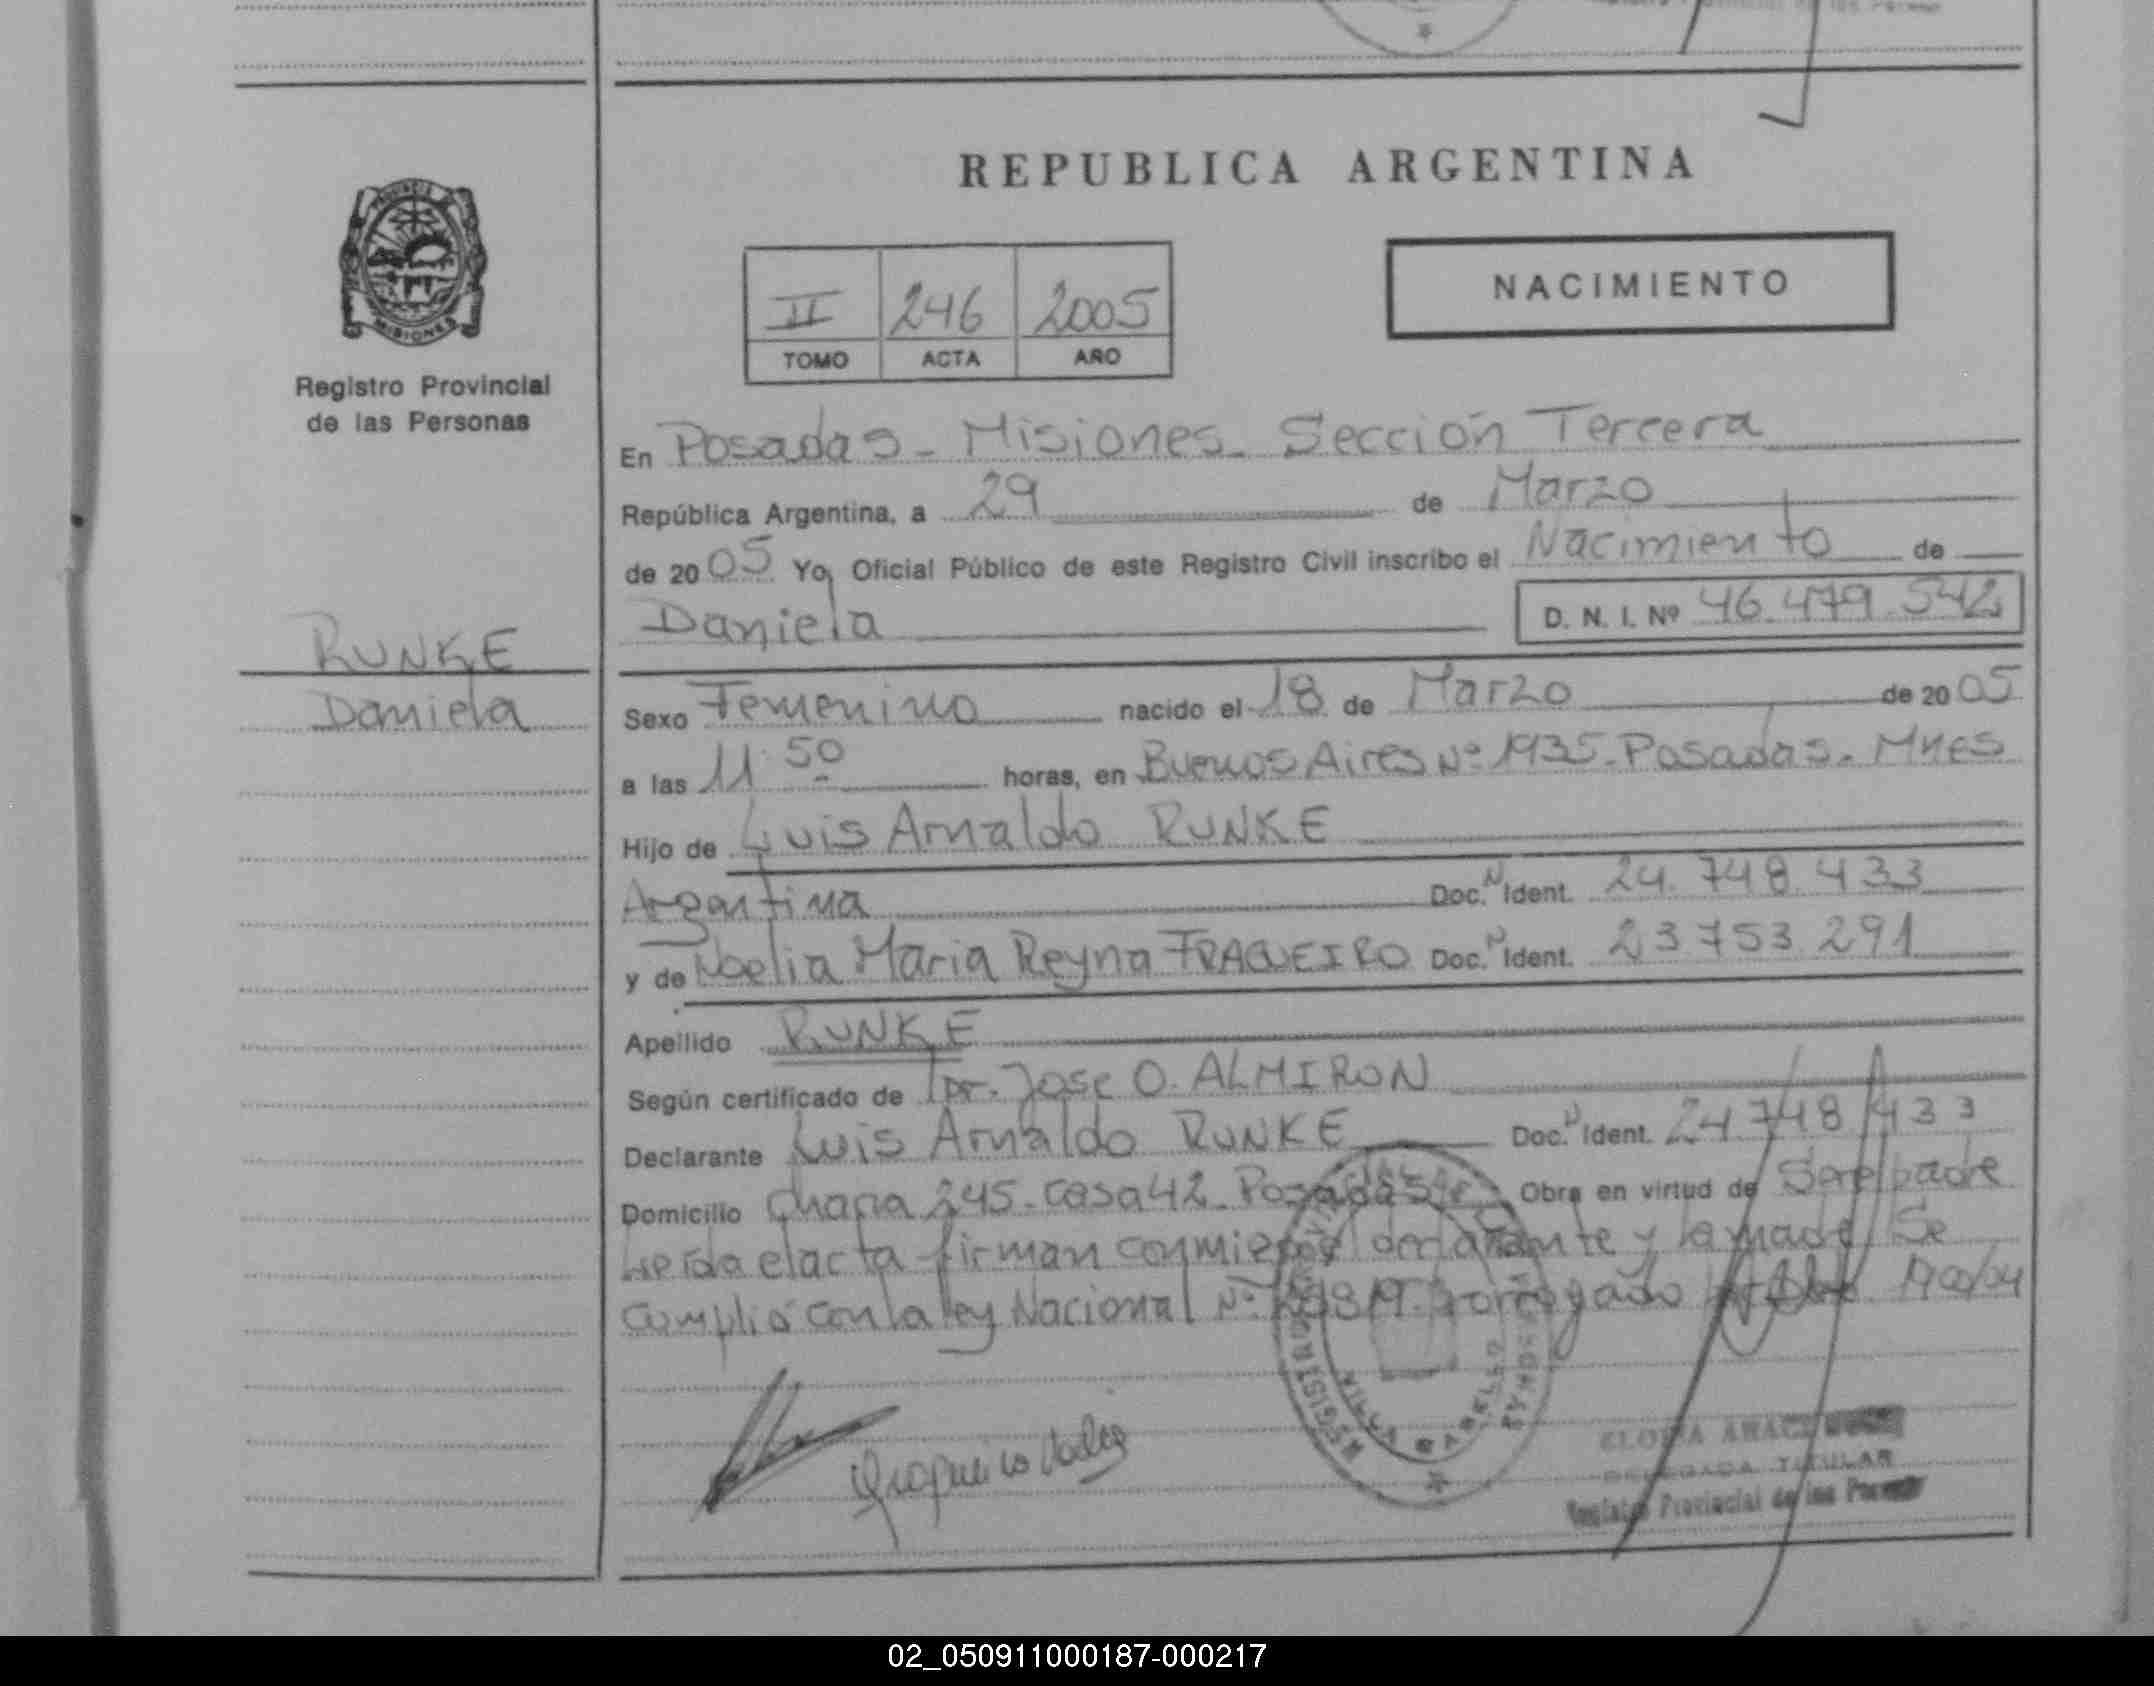 REPUBLICA ARGENTINA
PROVINCIA
MISIONES
Registro Provincial
de las Personas
II 246 2005
TOMO ACTA AÑO
NACIMIENTO
En Posadas - Misiones - Sección Tercera
República Argentina, a 29 de Marzo
de 2005 Yo, Oficial Público de este Registro Civil inscribo el Nacimiento de
Daniela D. N. I. Nº 46.479.542
RUNKE
Daniela
Sexo Femenino nacido el 18 de Marzo de 2005
a las 11 50 horas, en Buenos Aires Nº 1935 - Posadas - Mnes
Hijo de Luis Arnaldo RUNKE
Argentina Doc. N Ident. 24.748.433
y de Noelia Maria Reyna FRAQUEIRO Doc. N Ident. 23753.291
Apellido RUNKE
Según certificado de Dr. Jose O. ALMIRON
Declarante Luis Arnaldo RUNKE Doc. N Ident. 24748433
Domicilio Chacra 245 - Casa 42 - Posadas Obra en virtud de Ser el padre
Leída el acta firman conmigo el declarante y la madre Se
Cumplió con la ley Nacional Nº
REGISTRO
VILLA CABELLO
DELEGADA TITULAR
Registro Provincial de las
02_050911000187-000217